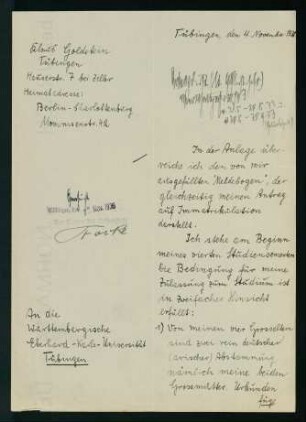 Goldstein
Tübingen
7 bei Zeller
Heimatadresse:
Berlin-Charlottenburg
Mommsenstr. 42
1936
An die
Württembergische
Eberhard-Karls-Universität
Tübingen
Tübingen den 4. November
In der Anlage über-
reiche ich den von mir
ausgefüllten "Meldebogen", der
gleichzeitig meinen Antrag
auf Immatrikulation
darstellt.
Ich stehe am Beginn
meines vierten Studiensemesters
die Bedingung für meine
Zulassung zum Studium ist
in zweifacher Hinsicht
erfüllt:
1) Von meinen vier Grosseltern
sind zwei rein deutscher
(arischer) Abstammung
nämlich meine beiden
Grossmütter. Urkunden